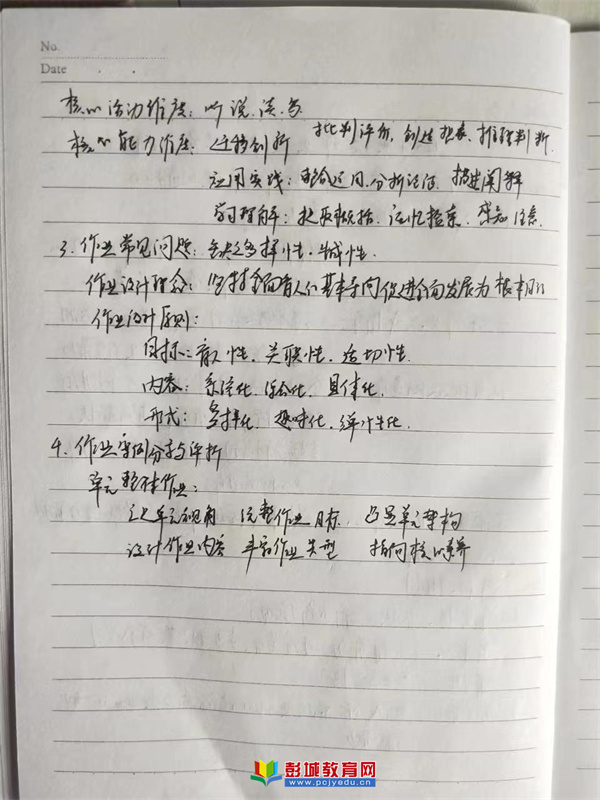 No.
Date
核心活动维度：听、说、读、写
核心能力维度：迁移创新 批判评价、创造想象、推理判断
应用实践：整合运用、分析论证、描述阐释
学习理解：提取概括、记忆检索、感知注意
3. 作业常见问题：缺乏多样性、生成性。
作业设计理念：坚持全面育人 基本导向 促进全面发展为根本
作业设计原则：
目标：一致性、关联性、适切性。
内容：系统化、综合化、具体化。
形式：多样化、趣味化、弹性化。
4. 作业案例分享与评析
单元整体作业：
立足单元视角 完整作业目标 凸显单元架构
设计作业内容 丰富作业类型 指向核心素养
彭城教育网
www.pcjyedu.cn